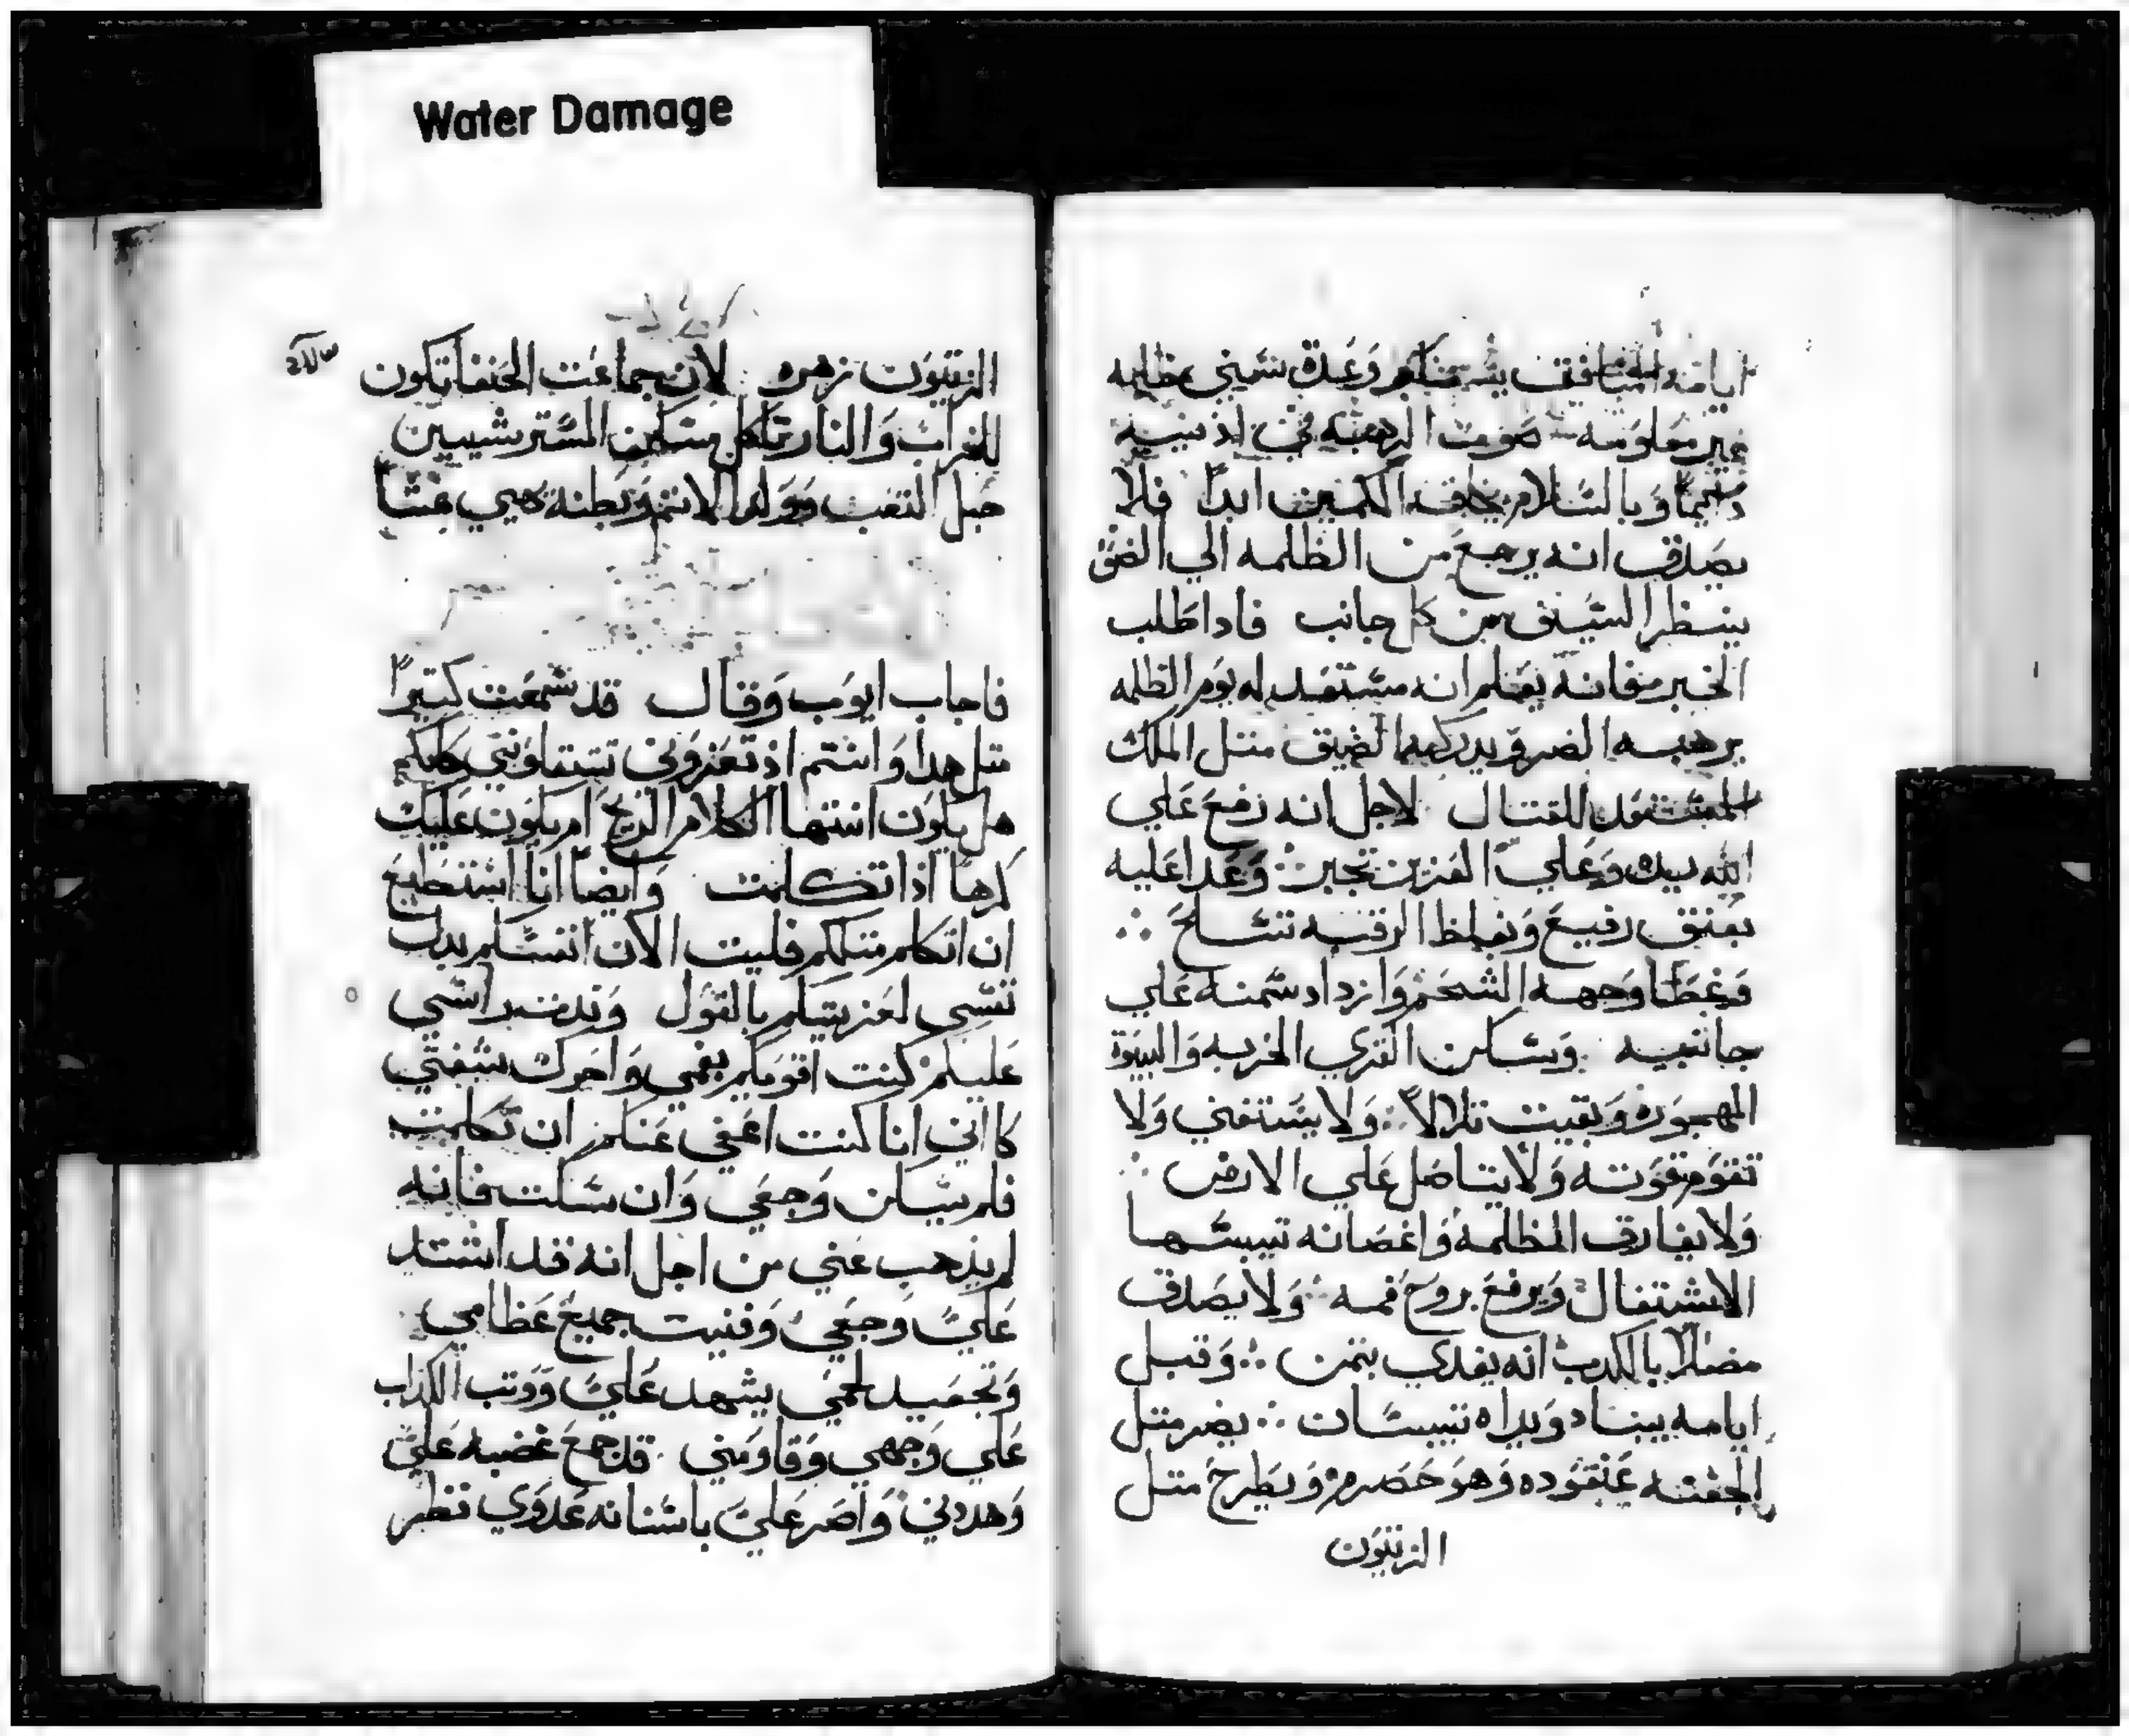 Water Damage
ايامه المنافق يستكبر وعدة سنين ظلمه
غير معلومه صوت الرهبه في اذنيه
دايما وبالسلام يخلف الكمين ابدا فلا
يصدق انه يرجع من الظلمه الي الضو
ينظر السيف من كل جانب فادا طلب
الخبز فانه يعلم انه مستعد له يوم الظلمه
يرهبه الضر ويدركه الضيق متل الملك
المستعد للقتال لاجل انه رفع علي
الله يده وعلي العزيز تجبر وعدا عليه
بعنق رفيع وبغلظ الرقبه تسلح
وغطا وجهه الشحم وازداد سمنه علي
جانبيه وسكن القري الخربه والبيوة
المهجوره وبقيت تلالا ولا يستغني ولا
تقوم قوته ولا يتاصل علي الارض
ولا يفارق المظلمه واغصانه تيبسها
الاشتعال ويرفع بروح فمه ولا يصدق
مضلا بالكدب انه يفدي بتمن وقبل
ايامه يبناد ويداه تيبسان يضر متل
الجفنه عنقوده وهو حصرم ويطرح متل
الزيتون
الزيتون زهره لان جماعت الحنفا تكون
للخراب والنار تاكل مساكن المسترشيين
حبل التعب وولد الاتم وبطنه هيي غشا
فاجاب ايوب وقال قد سمعت كتيرا
متل هدا وانتم اذ تعزوني تتتقاوني كلكم
هل يكون انتها الكلام الريح ام يكون عليك
كرها اذا تكلمت وايضا انا استطيع
ان اتكلم متلكم فليت الان انفسكم بدل
نفسي لعزيتكم بالقول وند راسي
عليكم كنت اقويكم بفمي واحرك شفتي
كاني انا كنت اعفي عنكم ان تكلمت
فلم يسكن وجعي وان سكت فانه
لم يذهب عني من اجل انه قد اشتد
علي وجعي وفنيت جميع عظامي
وتجعيد لحمي يشهد علي ووتب الكداب
علي وجهي وقاومني قد جمع غضبه علي
وهددني واصر علي باسنانه عدوي نظر